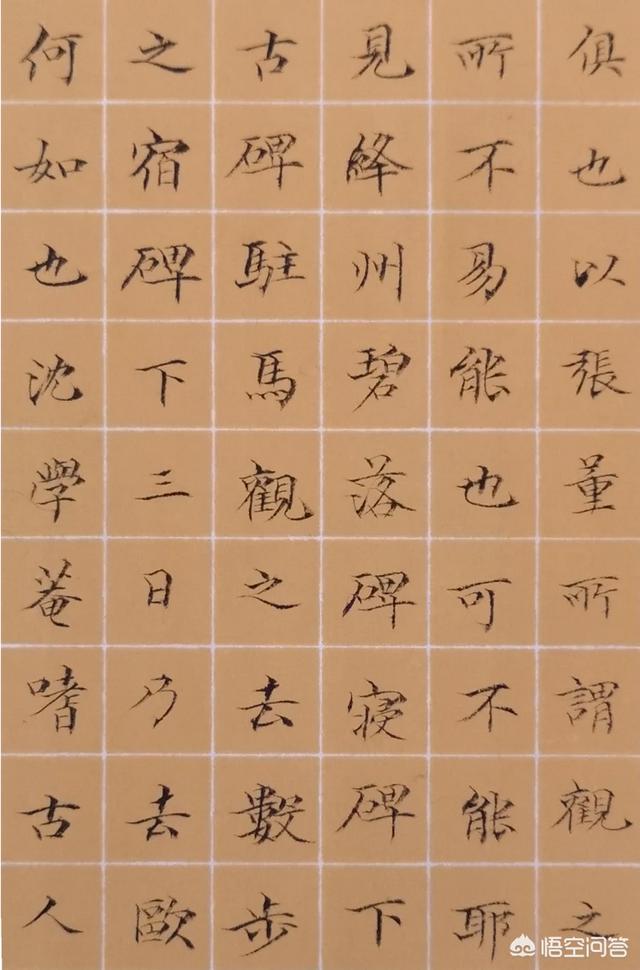 俱也以張董所謂觀之
所不易能也可不能耶
見絳州碧落碑寢碑下
古碑駐馬觀之去數步
之宿碑下三日乃去歐
何如也沈學菴嗜古人
悟空问答